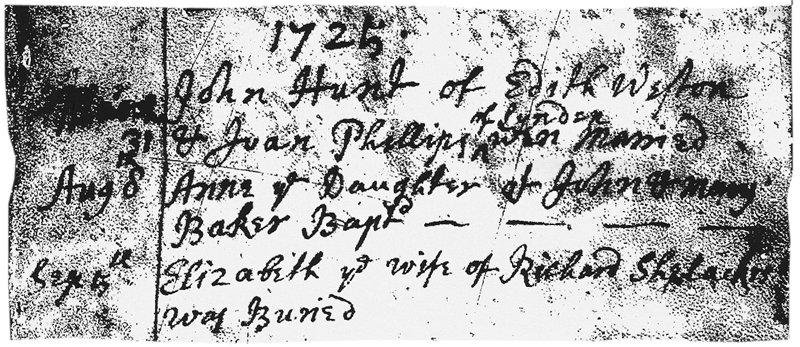 1725
John Hunt of Edith Weston
31 & Joan Phillips of Lyndon were Married
Aug 8th Anne ye Daughter of John & Mary
Baker Baptd
Sep 5th Elizabeth ye wife of Richard
was Buried